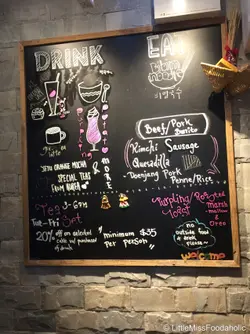 DRINK
EAT
SETO ORANGE MOCHA
SPECIAL TEAS
FROM
MORE
Beef/Pork
Burrito
Kimchi Sausage
Quesadilla
Doenjang Pork
Penne/Rice
Tea 3-6pm
Tue-Fri Set
20% off on selected
cake with purchase
of drinks
minimum $35
per person
Toast
Marsh-
mallow
no
outside food
& drink
please~
welcome
© LittleMissFoodaholic